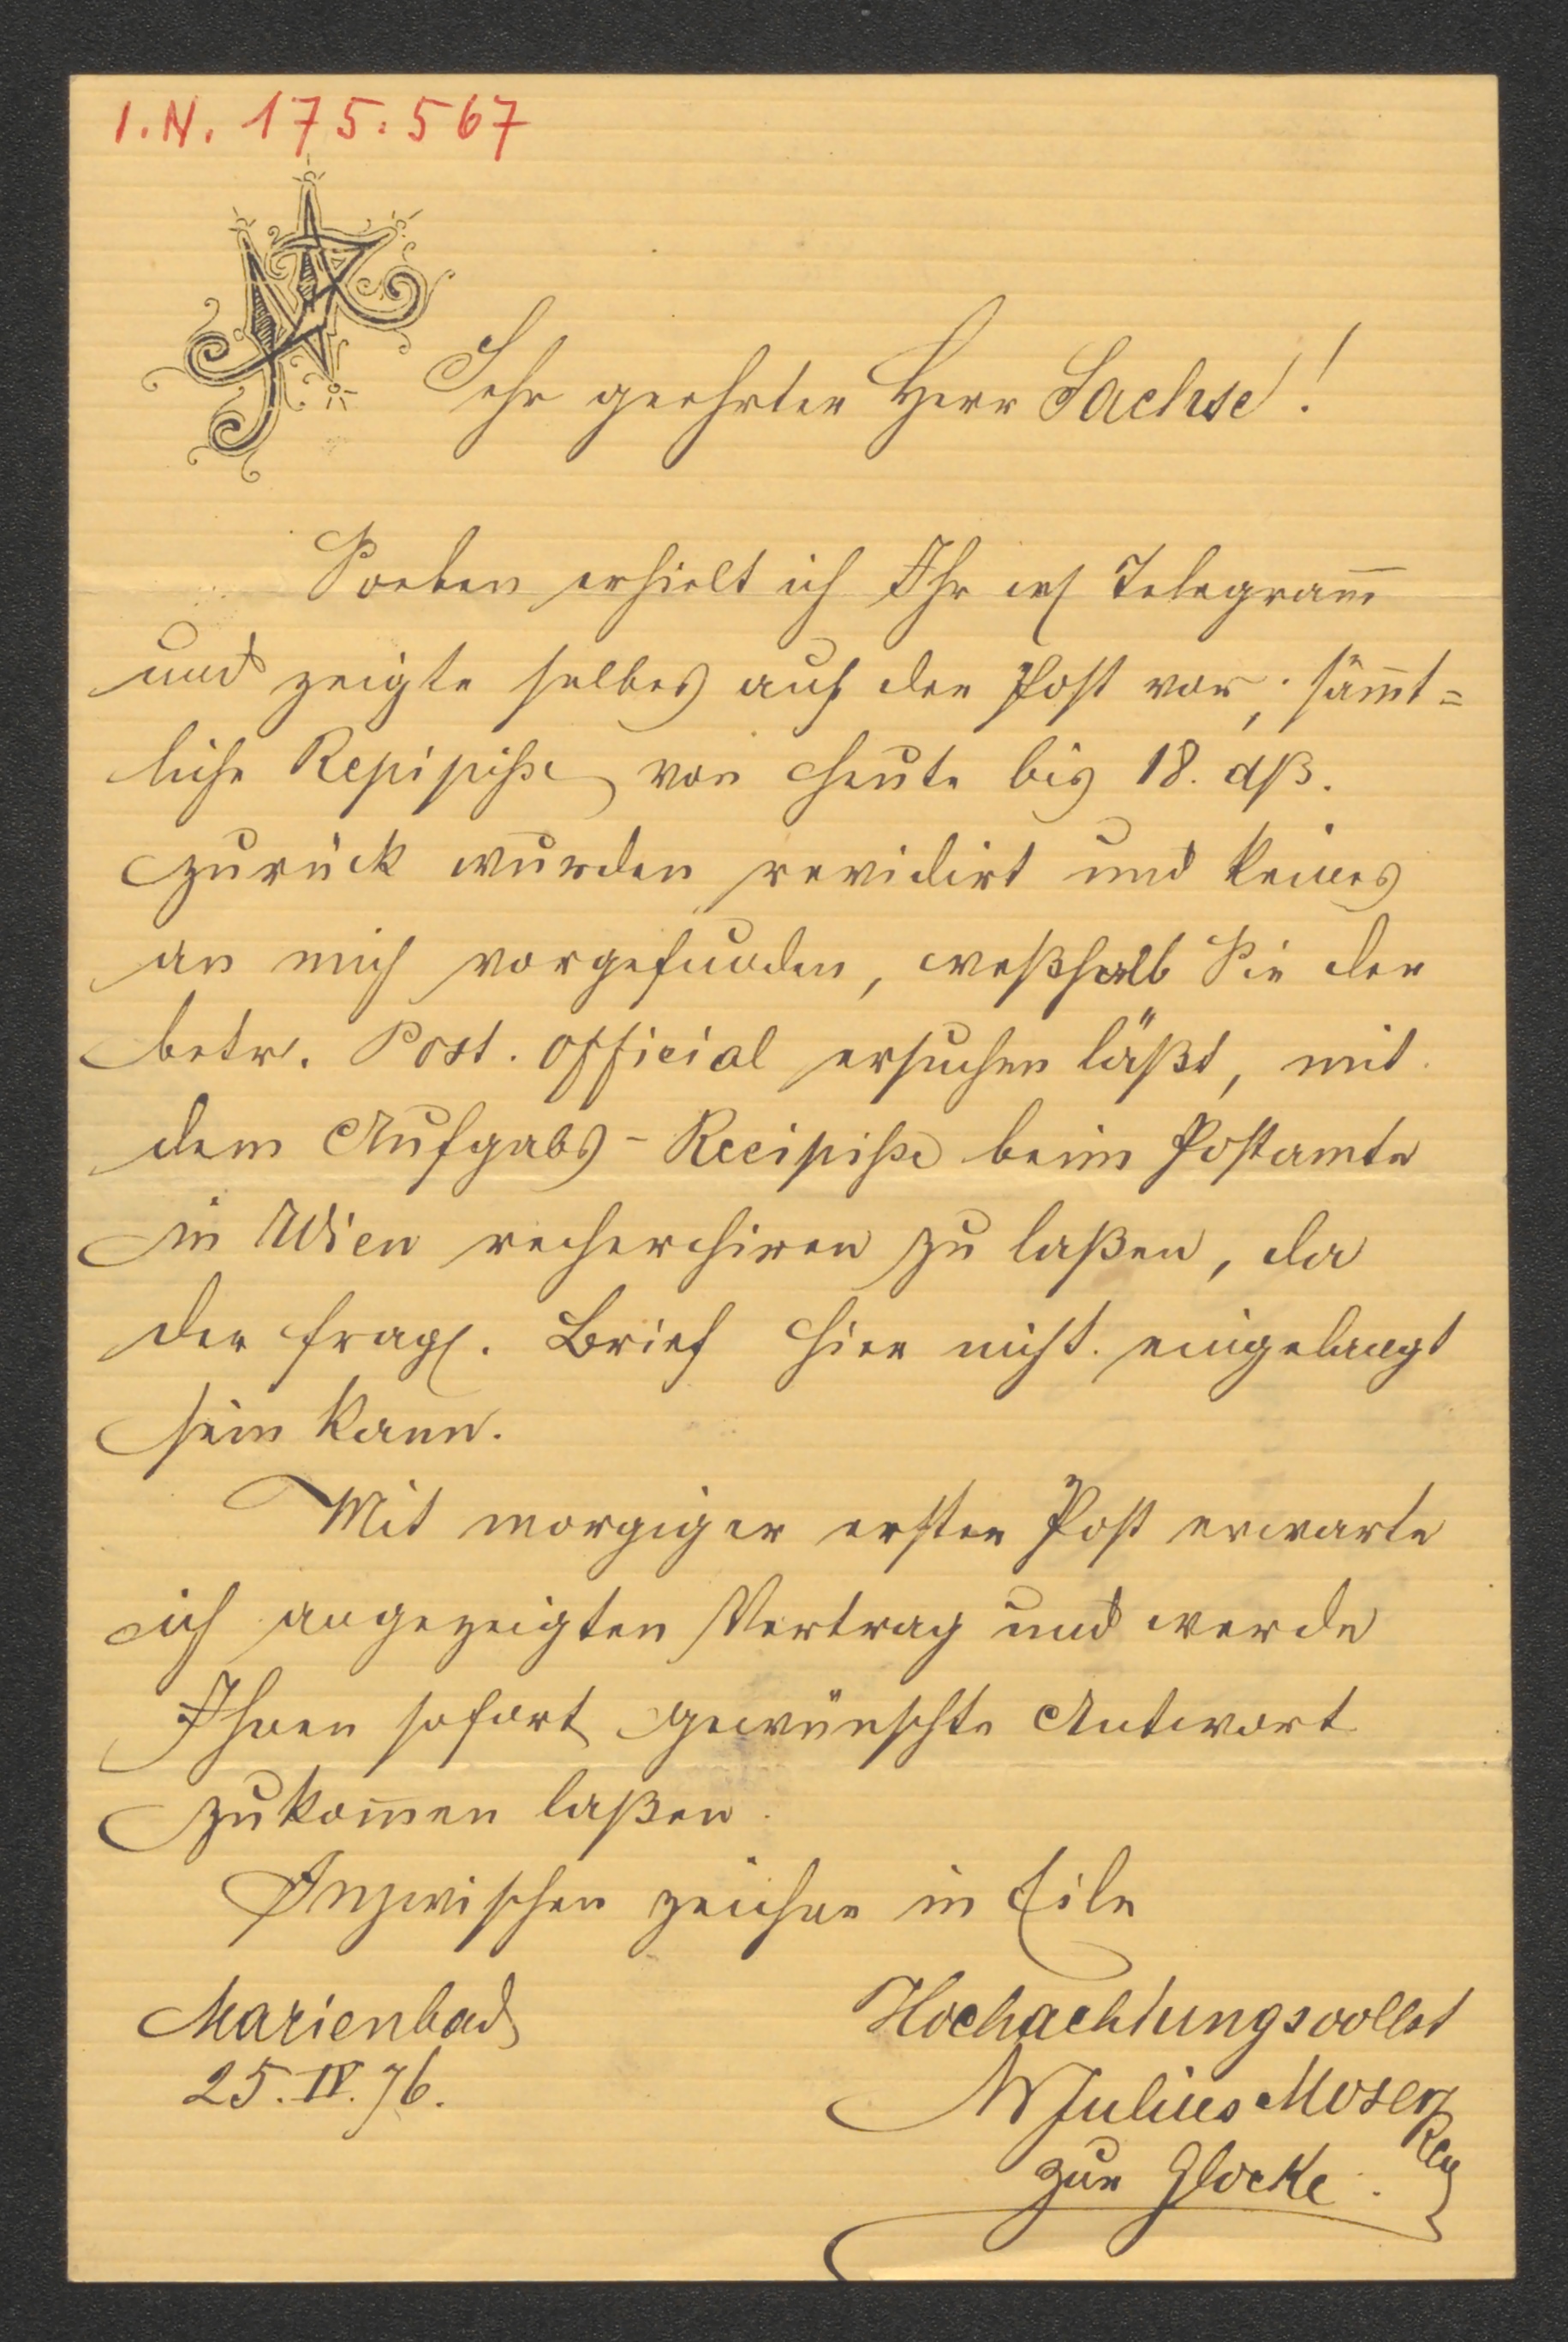 I.N. 175.567
Sehr geehrter Herr Sachse!
Soeben erhielt ich Ihr Telegram̅
und zeigte selbes auf der Post vor; säm̅t=
liche Repipisse von heute bis 18. dß.
zurück wurden revidirt und keines
an mich vorgefunden, weßhalb Sie der
betr. Post. Official ersuchen läßt, mit
dem Aufgabs-Recipisse beim Postamte
in Wien recherchiren zu laßen, da
der fragl. Brief hier nicht eingelangt
sein kann.
Mit morgiger erster Post erwarte
ich angezeigten Vertrag und werde
Ihnen sofort gewünschte Antwort
zukom̅en laßen.
Inzwischen zeichne in Eile
Marienbad
25. IV. 76.
Hochachtungsvollst
Julius Moser
zur Glocke.